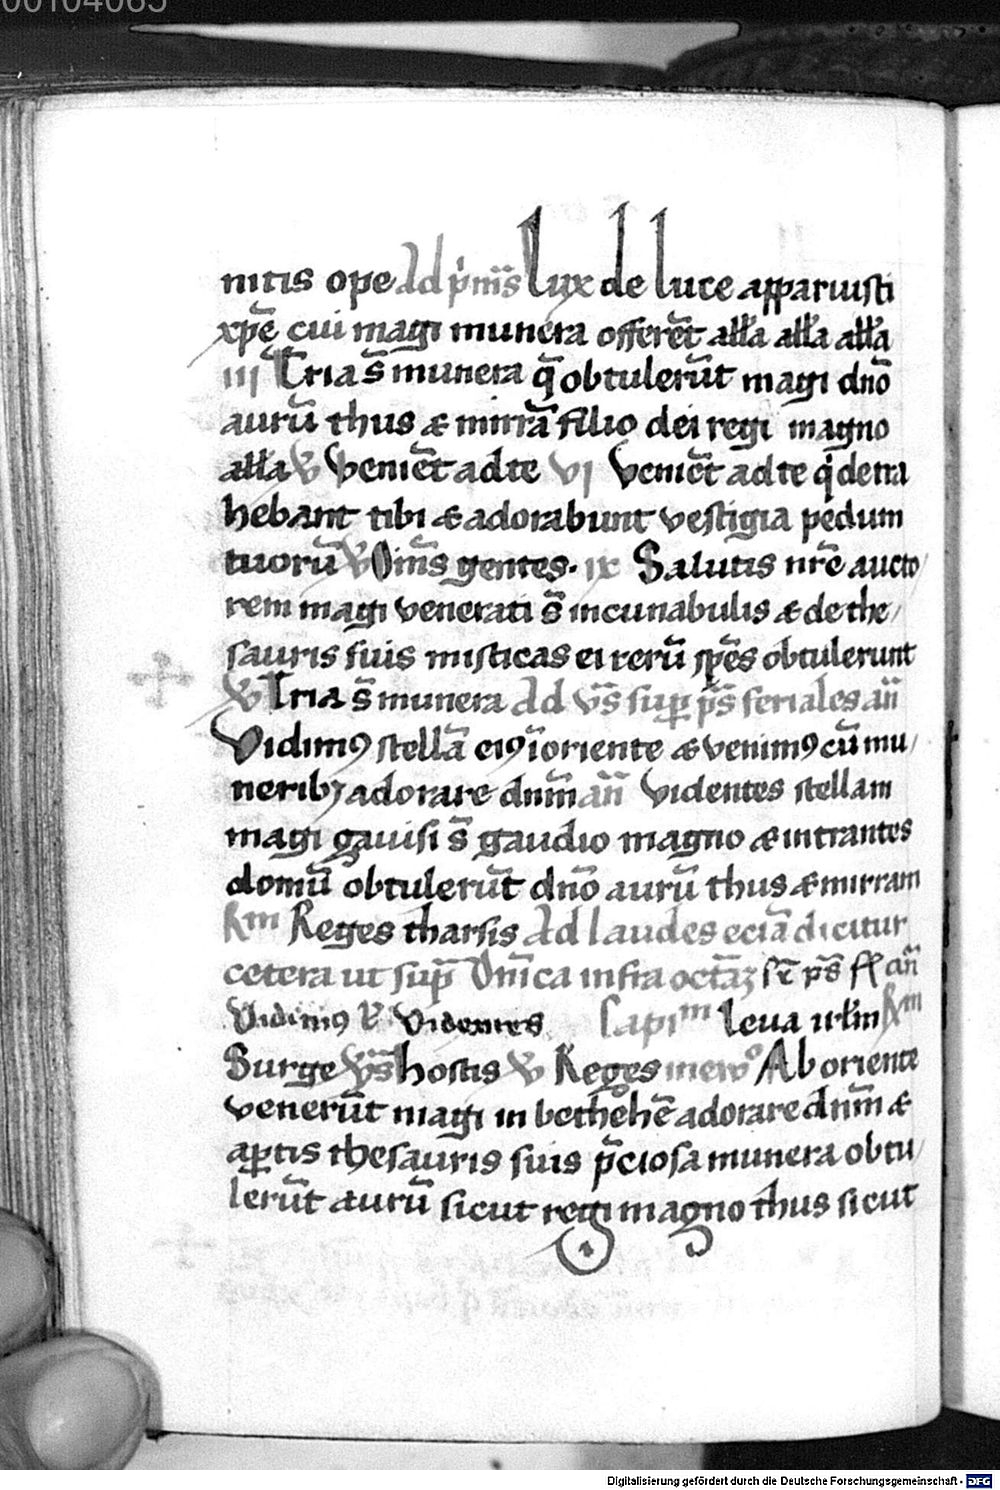 00104065
nitis ope Ad p̄mā̄s Lux de luce apparuisti
xp̄e cui magi munera offerēt alła alła alła
iij Tria s̄ munera q̄ obtulerūt magi dn̄o
aurū thus & mirrā filio dei regi magno
alła ℣ Veniēt ad te vj Veniēt ad te q̇ detra
hebant tibi & adorabunt vestigia pedum
tuorū ℣ Om̄s gentes. ix Salutis nr̄e aucto/
rem magi venerati s̄ incunabulis & de the/
sauris suis misticas ei rerū sp̄es obtulerunt
℣ Tria s̄ munera Ad vs̄ sup̄ ps̄ feriales an̄
Vidimꝯ stellā eiꝯ ī oriente & venimꝯ cū mu/
neribꝫ adorare dnm̄ an̄ Videntes stellam
magi gauisi s̄ gaudio magno & intrantes
domū obtulerūt dn̄o aurū thus & mirram
Rm Reges tharsis Ad laudes eciā dicitur
cetera ut sup̄ Dn̄ica infra octāꝫ sr̄ ps̄ fł an̄
Vidimꝯ & Videntes Capim Leua ir̄lm Rm
Surge ys̄ hostis ℣ Reges in ewo Ab oriente
venerūt magi in bethlehē adorare dnm̄ &
ap̄tis thesauris suis p̄ciosa munera obtu/
lerūt aurū sicut regi magno thus sicut
Digitalisierung gefördert durch die Deutsche Forschungsgemeinschaft - DFG